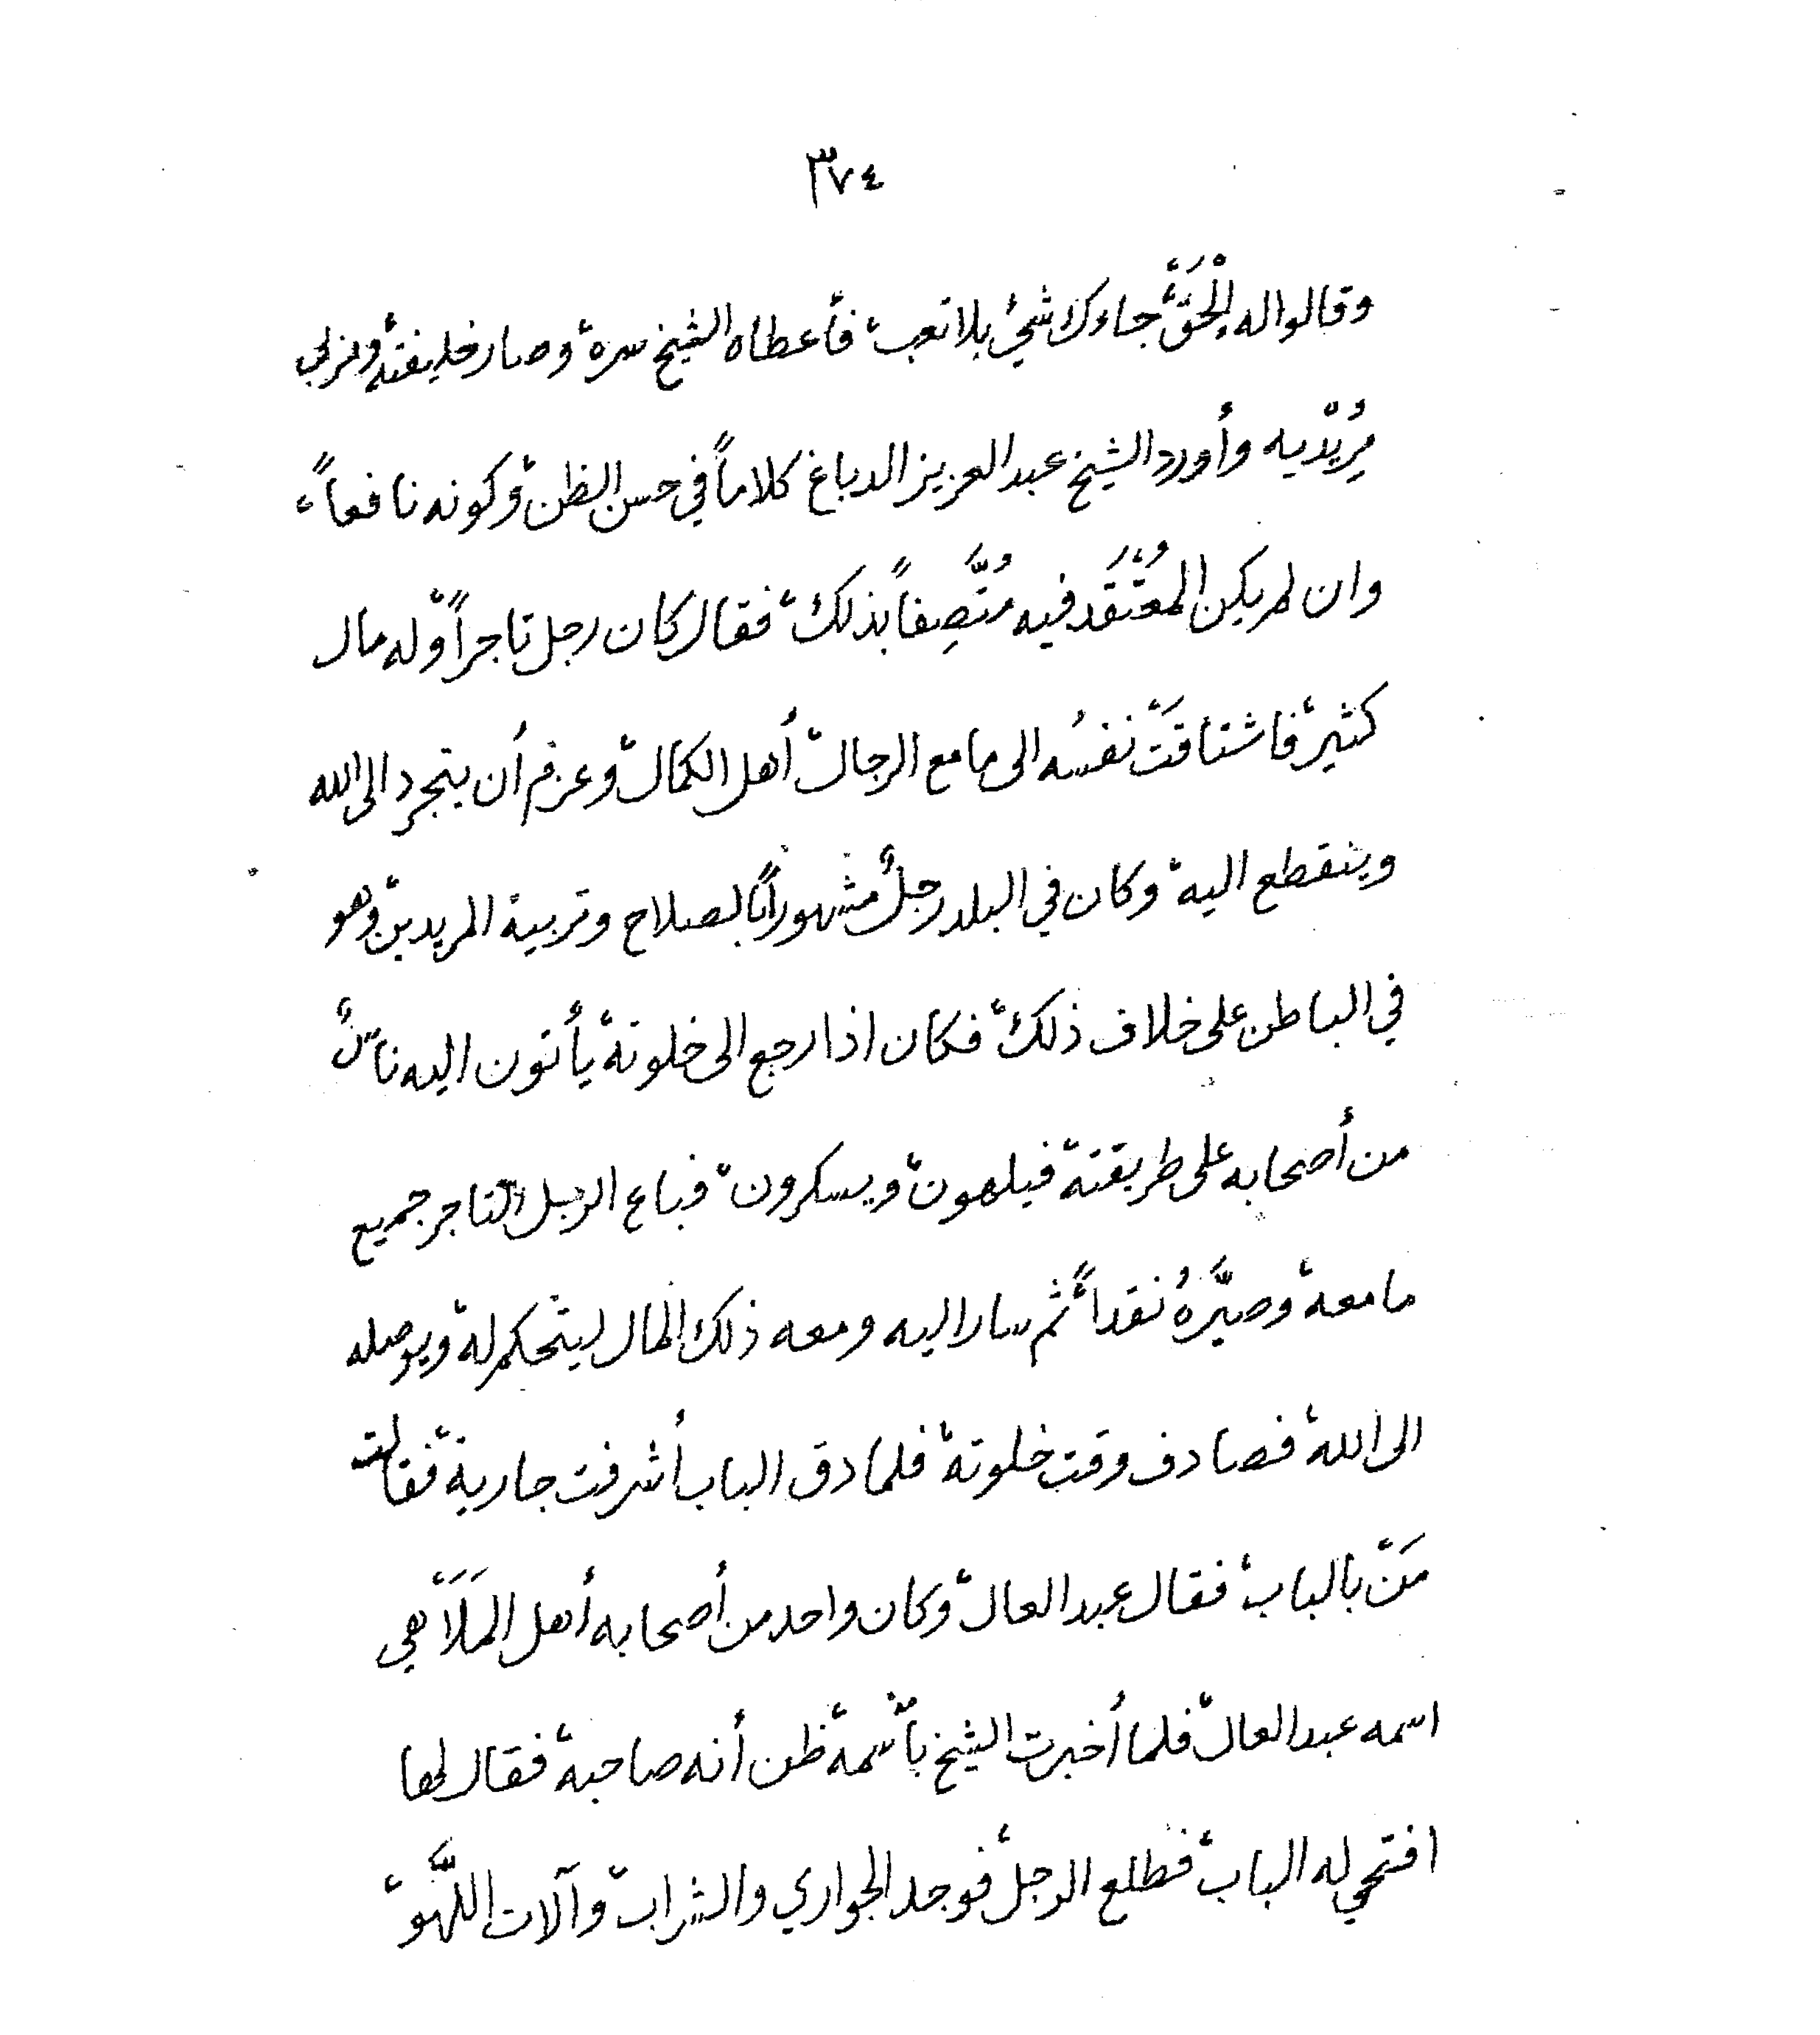 ٣٧٤
وقالوا له إِلْحَقْ، جاءك شئ بلا تعب، فأعطاه الشيخ سره، وصار خليفته، ومربي
مُرِيْدِيه وأورد الشيخ عبد العزيز الدباغ كلاماً في حسن الظن، وكونه نافعاً،
وان لم يكن المُعْتَقَد فيه مُتَّصِفاً بذلك، فقال كان رجل تاجراً، وله مال
كثير، فاشتاقَتْ نفسُه الى ما مع الرجال، أهل الكمال، وعزم أن يتجرد الى الله
وينقطع اليه، وكان في البلد رجلٌ مشهوراً بالصلاح وتربية المريدين، وهو
في الباطن على خلاف ذلك، فكان اذا رجع الى خلوته، يأتون اليه ناسٌ
من أصحابه على طريقته، فيلهون، ويسكرون، فباع الرجل التاجر جميع
ما معه، وصيَّرهُ نقداً، ثم سار اليه ومعه ذلك المال ليتحكم له، ويوصله
الى الله، فصادف وقت خلوته، فلما دق الباب أشرفت جارية، فقالت
مَنْ بالباب، فقال عبد العال، وكان واحد من أصحابه أهل المَلَاهي
اسمه عبد العال، فلما أخبرت الشيخ بأسمه، ظن أنه صاحبه، فقال لها
افتحي له الباب، فطلع الرجل، فوجد الجواري والشراب، وآلات اللَّهو،